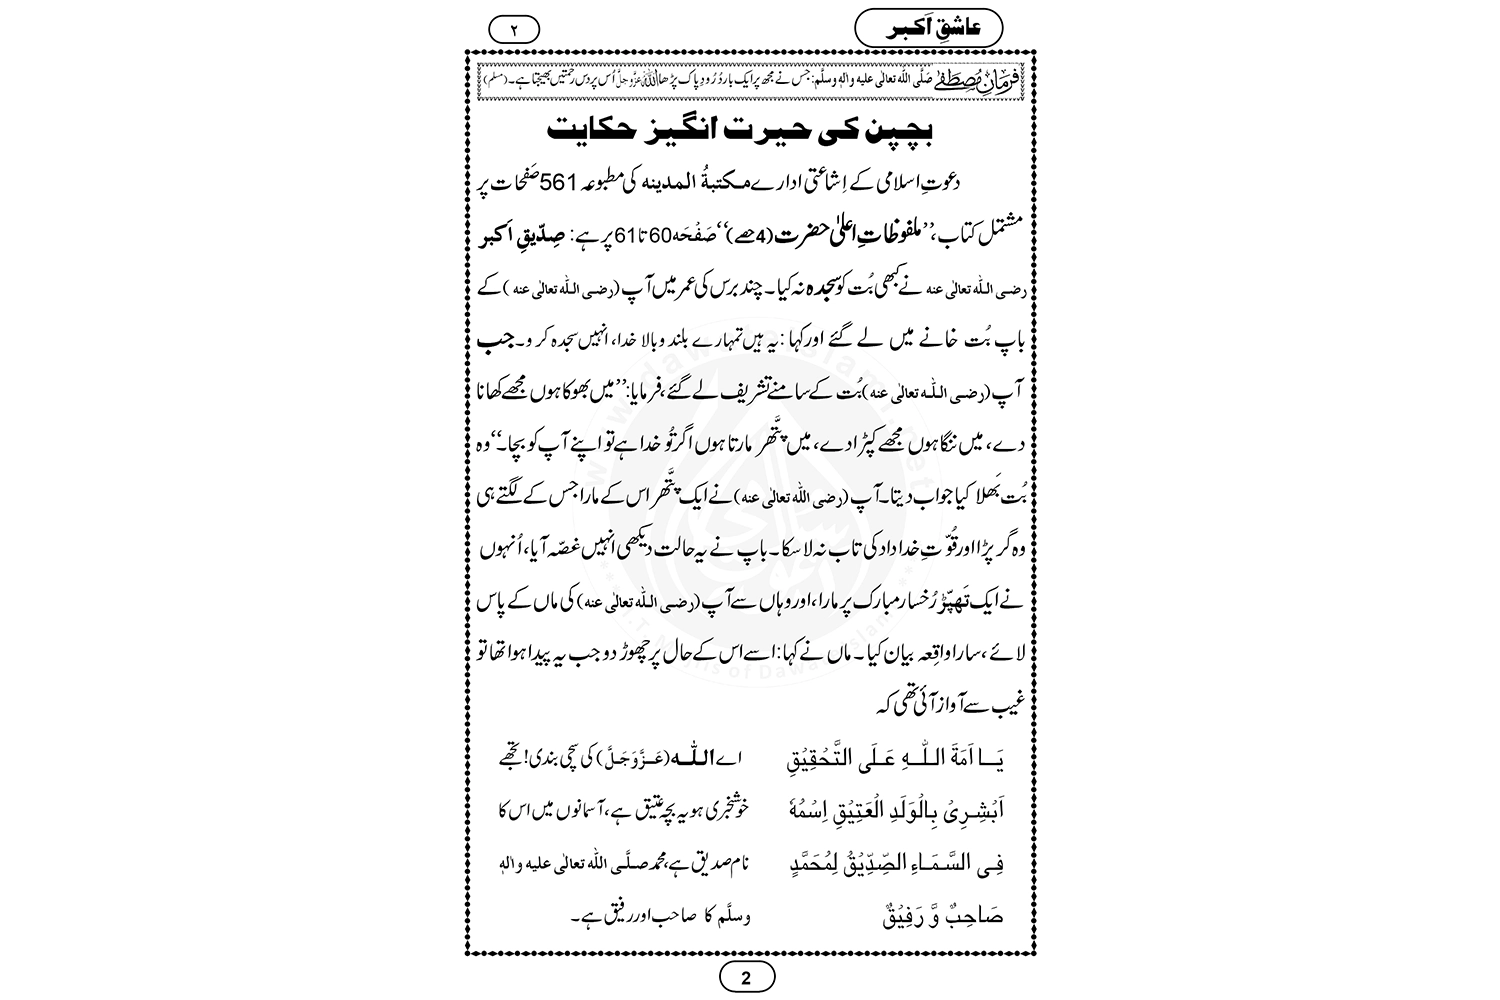 عاشقِ اَکبر
۲
فرمانِ مصطفٰے صَلَّی اللہ تعالٰی علیہ واٰلہٖ وسلَّم: جس نے مجھ پر ایک بار دُرُودِ پاک پڑھا اللہ عَزَّوَجَلَّ اُس پر دس رحمتیں بھیجتا ہے۔ (مسلم)
بچپن کی حیرت انگیز حکایت
دعوتِ اسلامی کے اِشاعتی ادارے مکتبۃُ المدینہ کی مطبوعہ 561 صَفحات پر
مشتمل کتاب، ’’ملفوظاتِ اعلیٰ حضرت (4حصے)‘‘ صَفْحَہ 60 تا 61 پر ہے: صِدّیقِ اَکبر
رضی اللہ تعالٰی عنہ نے کبھی بُت کو سجدہ نہ کیا۔ چند برس کی عمر میں آپ (رضی اللہ تعالٰی عنہ) کے
باپ بُت خانے میں لے گئے اور کہا: یہ ہیں تمہارے بلند و بالا خدا، انہیں سجدہ کرو۔ جب
آپ (رضی اللہ تعالٰی عنہ) بُت کے سامنے تشریف لے گئے، فرمایا: ’’میں بھوکا ہوں مجھے کھانا
دے، میں ننگا ہوں مجھے کپڑا دے، میں پتَّھر مارتا ہوں اگر تُو خدا ہے تو اپنے آپ کو بچا۔‘‘ وہ
بُت بَھلا کیا جواب دیتا۔ آپ (رضی اللہ تعالٰی عنہ) نے ایک پتَّھر اس کے مارا جس کے لگتے ہی
وہ گر پڑا اور قُوّتِ خداداد کی تاب نہ لاسکا۔ باپ نے یہ حالت دیکھی انہیں غصّہ آیا، اُنہوں
نے ایک تَھپَّڑ رُخسار مبارک پر مارا، اور وہاں سے آپ (رضی اللہ تعالٰی عنہ) کی ماں کے پاس
لائے، سارا واقِعہ بیان کیا۔ ماں نے کہا: اسے اس کے حال پر چھوڑ دو جب یہ پیدا ہوا تھا تو
غیب سے آواز آئی تھی کہ
یَا اَمَۃَ اللّٰہِ عَلَی التَّحْقِیْقِ
اَبْشِرِیْ بِالْوَلَدِ الْعَتِیْقِ اِسْمُہٗ
فِی السَّمَاءِ الصِّدِّیْقُ لِمُحَمَّدٍ
صَاحِبٌ وَّ رَفِیْقٌ
اے اللہ (عَزَّوَجَلَّ) کی سچی بندی! تجھے
خوشخبری ہو یہ بچہ عتیق ہے، آسمانوں میں اس کا
نام صدیق ہے، محمد صلَّی اللہ تعالٰی علیہ واٰلہٖ
وسلَّم کا صاحب اور رفیق ہے۔
2